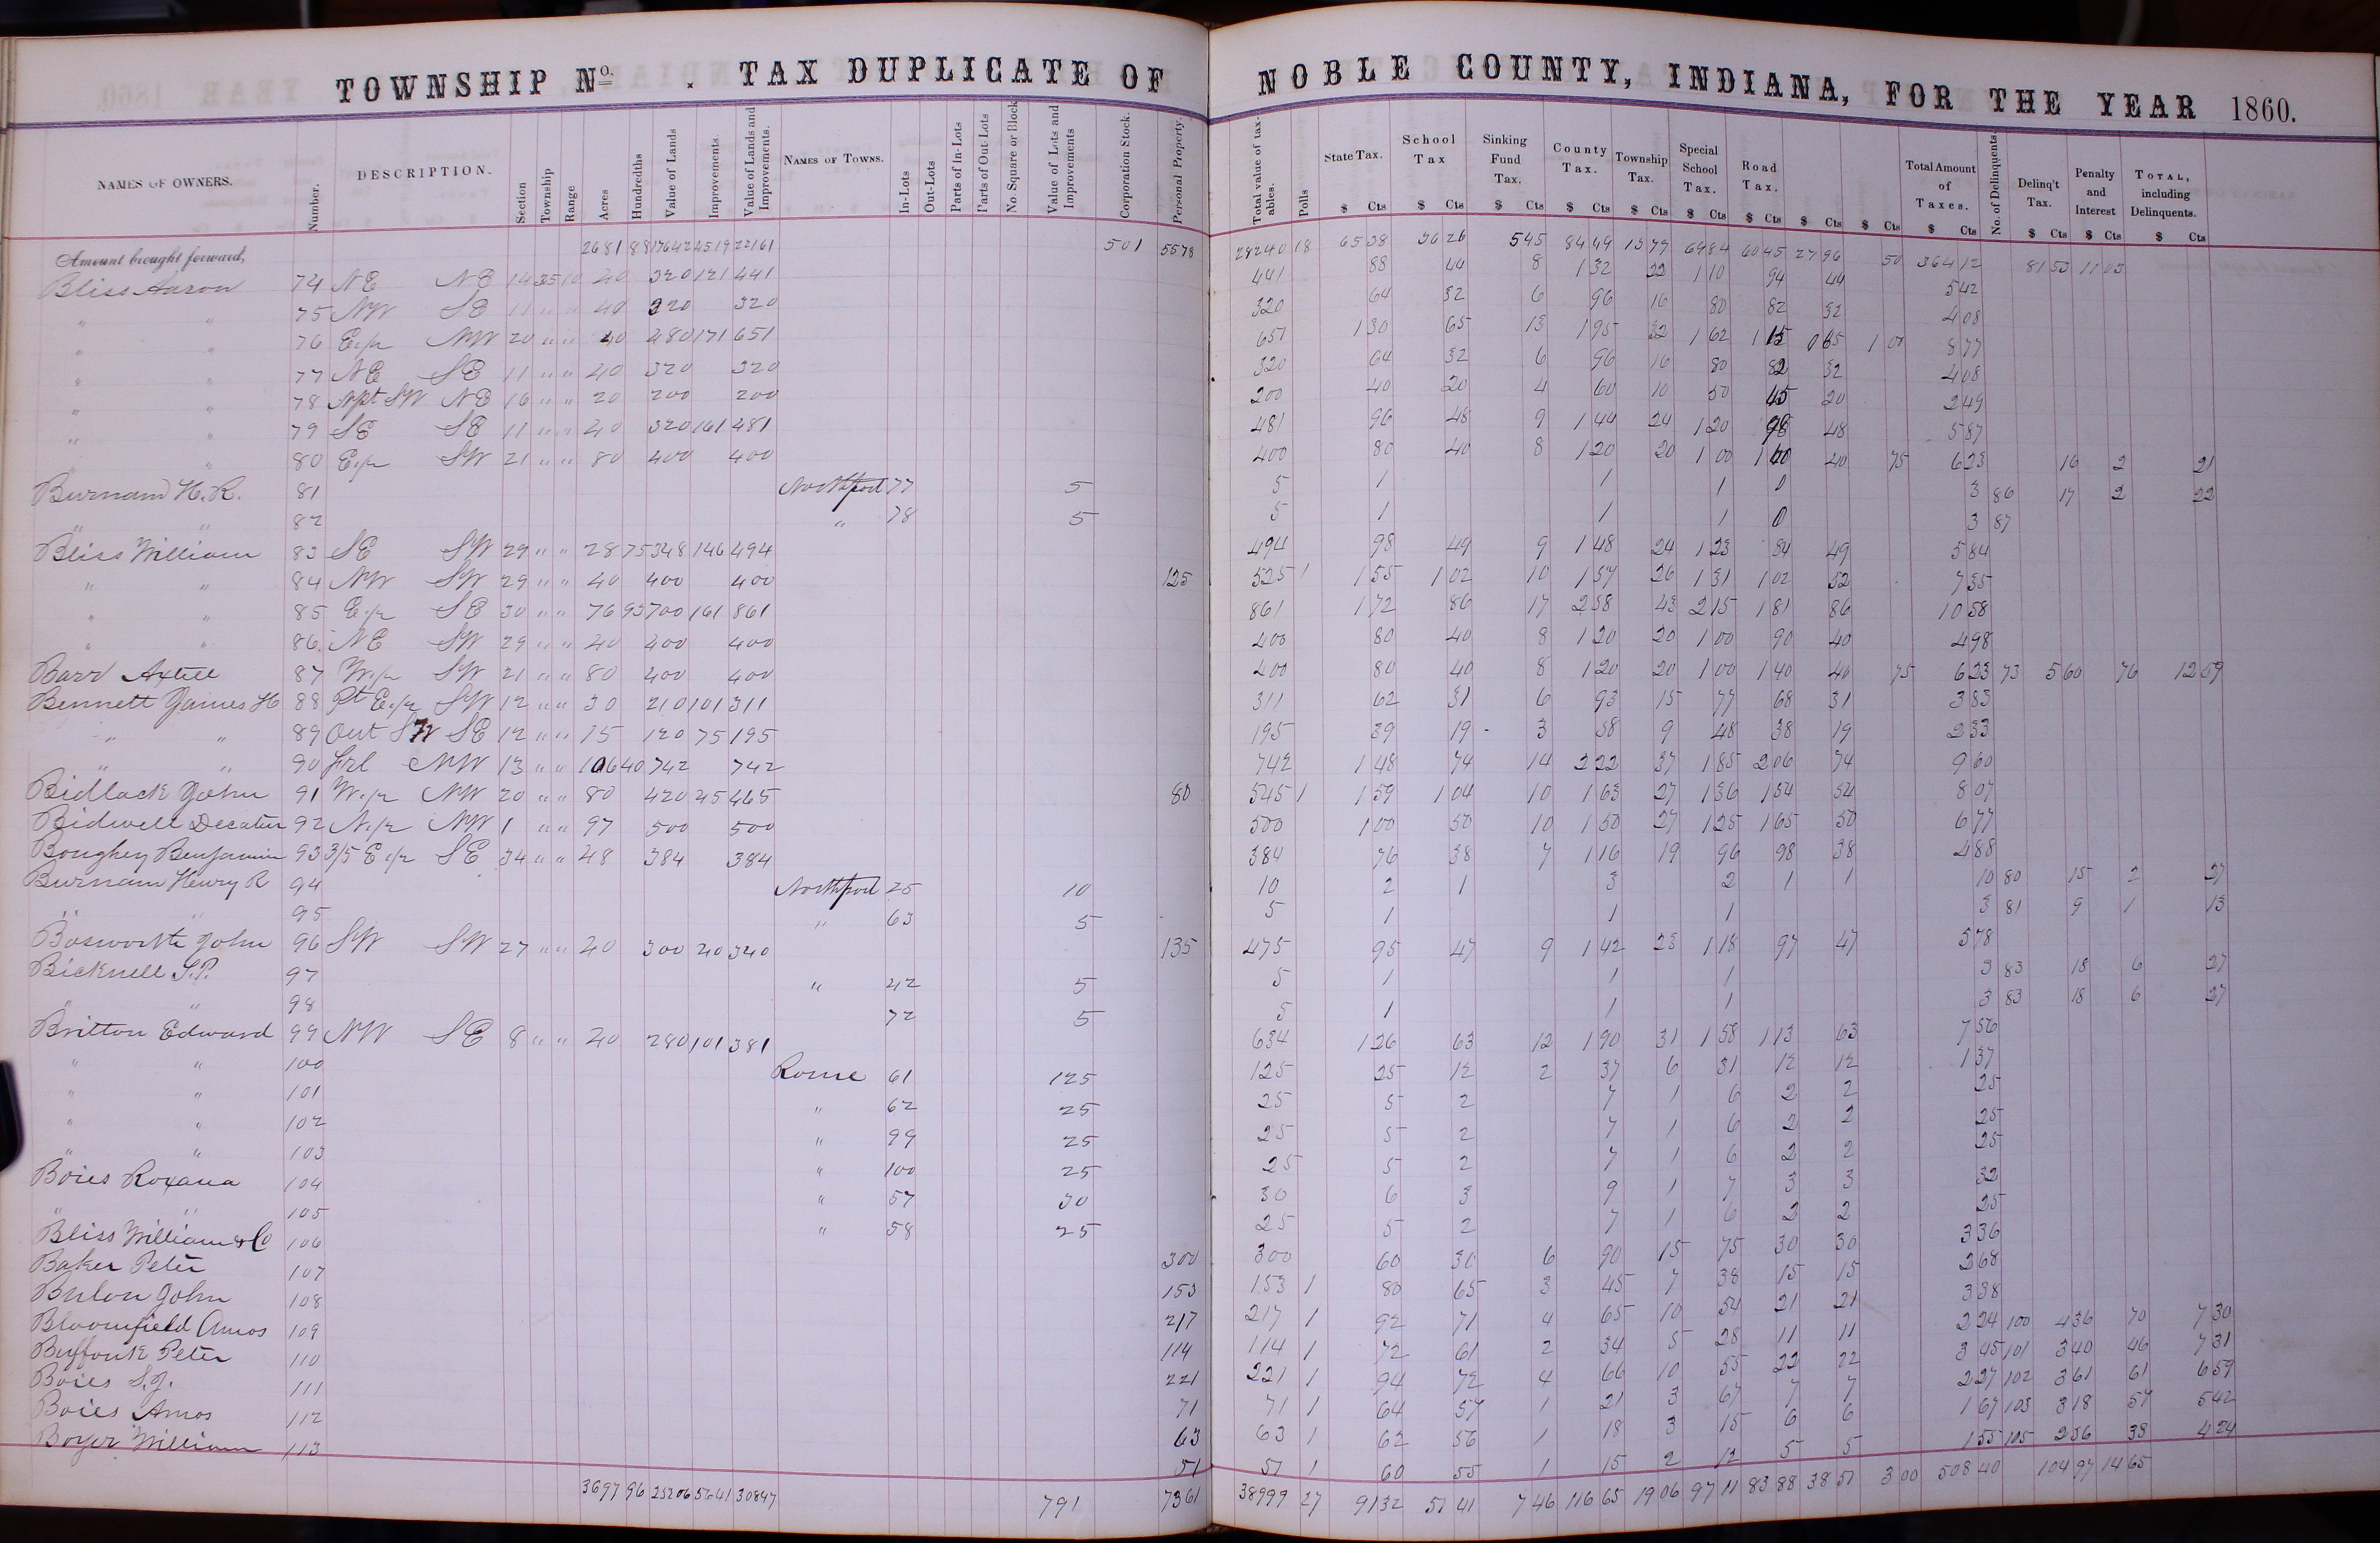 TOWNSHIP No. . TAX DUPLICATE OF NOBLE COUNTY, INDIANA, FOR THE YEAR 1860.
NAMES OF OWNERS. Number. DESCRIPTION. Section Township Range Acres Hundredths Value of Lands Improvements. Value of Lands and Improvements. NAMES OF TOWNS. In-Lots Out-Lots Parts of In-Lots Parts of Out Lots No. Square or Block Value of Lots and Improvements Corporation Stock. Personal Property. Total value of taxables. Polls State Tax. School Tax Sinking Fund Tax. County Tax. Township Tax. Special School Tax. Road Tax. Total Amount of Taxes. No. of Delinquents Delinq't Tax. Penalty and Interest TOTAL, including Delinquents.
$ Cts $ Cts $ Cts $ Cts $ Cts $ Cts $ Cts $ Cts $ Cts $ Cts $ Cts $ Cts $ Cts
Amount brought forward, 2681 88 17642 4519 22161 501 5578 28240 18 65 38 36 26 5 45 84 49 13 79 69 84 60 45 27 96 50 364 12 81 53 11 03
Bliss Aaron 74 NE NE 14 35 10 40 320 121 441 441 88 44 8 1 32 22 1 10 94 44 5 42
" " 75 NW SE 11 " " 40 320 320 320 64 32 6 96 16 80 82 32 4 08
" " 76 E 1/2 NW 20 " " 40 480 171 651 651 1 30 65 13 1 95 32 1 62 1 15 65 1 00 8 77
" " 77 NE SE 11 " " 40 320 320 320 64 32 6 96 16 80 82 32 4 08
" " 78 Npt SW NE 16 " " 20 200 200 200 40 20 4 60 10 50 45 20 2 49
" " 79 SE SE 11 " " 40 320 161 481 481 96 48 9 1 44 24 1 20 98 48 5 87
" " 80 E 1/2 SW 21 " " 80 400 400 400 80 40 8 1 20 20 1 00 1 40 40 75 6 23 16 2 21
Burnam H. R. 81 Northport 77 5 5 1 1 1 0 3 86 17 2 22
" " 82 " 78 5 5 1 1 1 0 3 87
Bliss William 83 SE SW 29 " " 28 75 348 146 494 494 98 49 9 1 48 24 1 23 84 49 5 84
" " 84 NW SW 29 " " 40 400 400 125 525 1 1 55 1 02 10 1 57 26 1 31 1 02 52 7 35
" " 85 E 1/2 SE 30 " " 76 93 700 161 861 861 1 72 86 17 2 58 43 2 15 1 81 86 10 58
" " 86 NE SW 29 " " 40 400 400 400 80 40 8 1 20 20 1 00 90 40 4 98
Barr Axtell 87 W 1/2 SW 21 " " 80 400 400 400 80 40 8 1 20 20 1 00 1 40 40 75 6 23 73 5 60 76 12 59
Bennett James H 88 Pt E 1/2 SW 12 " " 30 210 101 311 311 62 31 6 93 15 77 68 31 3 83
" " 89 Out SW SE 12 " " 15 120 75 195 195 39 19 3 58 9 48 38 19 2 33
" " 90 Frl NW 13 " " 106 40 742 742 742 1 48 74 14 2 22 37 1 85 2 06 74 9 60
Bidlack John 91 W 1/2 NW 20 " " 80 420 45 465 80 545 1 1 59 1 04 10 1 63 27 1 36 1 54 54 8 07
Bidwell Decatur 92 N 1/2 NW 1 " " 97 500 500 500 1 00 50 10 1 50 27 1 25 1 65 50 6 77
Boughey Benjamin 93 3/5 E 1/2 SE 34 " " 48 384 384 384 76 38 7 1 16 19 96 98 38 4 88
Burnam Henry R 94 Northport 25 10 10 2 1 3 2 1 1 10 80 15 2 27
" " 95 " 63 5 5 1 1 1 3 81 9 1 13
Bosworth John 96 SW SW 27 " " 40 300 40 340 135 475 95 47 9 1 42 23 1 18 97 47 5 78
Bicknell S.P. 97 " 42 5 5 1 1 1 3 83 18 6 27
" " 98 72 5 5 1 1 1 3 83 18 6 27
Britton Edward 99 NW SE 8 " " 40 280 101 381 634 1 26 63 12 1 90 31 1 58 1 13 63 7 56
" " 100 Rome 61 125 125 25 12 2 37 6 31 12 12 1 37
" " 101 " 62 25 25 5 2 7 1 6 2 2 25
" " 102 " 99 25 25 5 2 7 1 6 2 2 25
" " 103 " 100 25 25 5 2 7 1 6 2 2 25
Boies Roxana 104 " 57 30 30 6 3 9 1 7 3 3 32
" " 105 " 58 25 25 5 2 7 1 6 2 2 25
Bliss William & Co 106 300 300 60 30 6 90 15 75 30 30 3 36
Baker Peter 107 153 153 1 80 65 3 45 7 38 15 15 2 68
John 108 217 217 1 92 71 4 65 10 54 21 21 3 38
Bloomfield Amos 109 114 114 1 72 61 2 34 5 28 11 11 2 24 100 4 36 70 7 30
Peter 110 221 221 1 94 72 4 66 10 55 22 22 3 45 101 3 40 46 7 31
Boies S.J. 111 71 71 1 64 57 1 21 3 67 7 7 2 27 102 3 61 61 6 59
Boies Amos 112 63 63 1 62 56 1 18 3 15 6 6 1 67 103 3 18 57 5 42
Boyer William 113 51 51 1 60 55 1 15 2 12 5 5 1 55 105 2 56 38 4 24
3697 96 25206 5641 30847 791 7361 38999 27 91 32 51 41 7 46 116 65 19 06 97 11 83 88 38 51 3 00 508 40 104 97 14 65